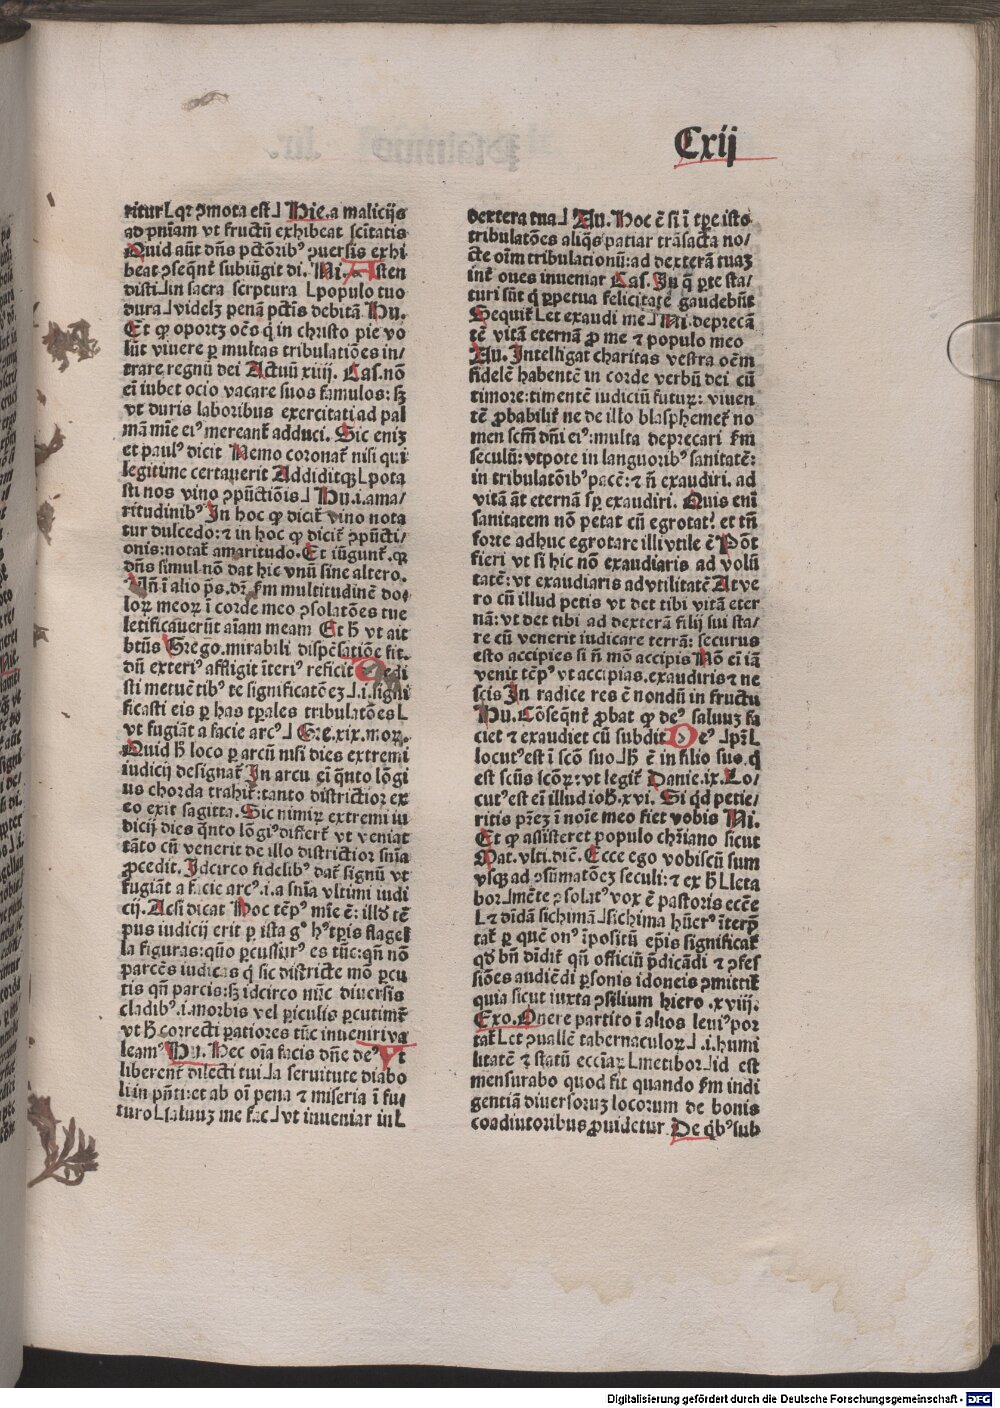 Cxij
ritur⌊qꝛ ꝯmota est⌋ Hie.a malicijs
ad pniam vt fructū exhibeat scītatis
Quid aūt dn̄s pctōribꝰ ꝯuersis exhi
beat ꝯseqn̄t subiūgit di. Ni. Asten
disti⌋in sacra scrptura ⌊populo tuo
dura⌋videlꝫ penā pctīs debitā Hu.
Et qꝫ oportꝫ oēs q̄ in christo pie vo
lūt viuere ꝑ multas tribulatiōes in/
trare regnū dei Actuū xiiij. Cas.nō
ei iubet ocio vacare suos famulos: sꝫ
vt duris laboribus exercitati ad pal
mā mīe eiꝰ mereant̄ adduci. Sic eniꝫ
et paulꝰ dicit Nemo coronat̄ nisi qui
legitime certauerit Addiditqꝫ⌊pota
sti nos vino ꝯpūctiōis⌋ Hu.i.ama/
ritudinibꝰ In hoc qꝫ dicit̄ vino nota
tur dulcedo:⁊ in hoc qꝫ dicit̄ ꝯpūcti/
onis:notat̄ amaritudo. Et iūgunt̄.qꝫ
dn̄s simul nō dat hic vnū sine altero.
Vn̄ ī alio ps̄.dꝛ. ẜm multitudinē do
loꝝ meoꝝ ī corde meo ꝯsolatōes tue
letificauerūt aīam meam Et h̄ vt ait
btūs Grego.mirabili dispēsatiōe fit.
dū exteriꝰ affligit īteriꝰ reficit Dedi
sti metuētibꝰ te significatōeꝫ⌋.i.signi
ficasti eis ꝑ has tꝑales tribulatōes⌊
vt fugiāt a facie arcꝰ⌋ Gre.xix.moꝝ.
Quid h̄ loco ꝑ arcū nisi dies extremi
iudicij designat̄ In arcu ei q̄nto lōgi
us chorda trahit̄:tanto districtior ex
eo exit sagitta. Sic nimiꝝ extremi iu
dicij dies q̄nto lōgiꝰ differt̄ vt veniat
tāto cū venerit de illo districtior snīa
ꝓcedit. Idcirco fidelibꝰ dat̄ signū vt
fugiāt a facie arcꝰ.i.a snīa vltimi iudi
cij. Acsi dicat Hoc tēpꝰ mīe ē: illd tē
pus iudicij erit ꝑ ista gͦ hꝰ tꝑis flagel
la figuras:qūo ꝑcussurꝰ es tūc:qn̄ nō
parcēs iudicas q̄ sic districte mō ꝑcu
tis qn̄ parcis:sꝫ idcirco nūc diuersis
cladibꝰ.i.morbis vel ꝑiculis ꝑcutimꝰ
vt h̄ correcti ꝑatiores tūc inueniri va
leamꝰ Hu. Hec oīa facis dn̄e deꝰ Vt
liberent̄ dilecti tui⌋a seruitute diabo
li in pn̄ti:et ab oī pena ⁊ miseria ī fu/
turo⌊saluuꝫ me fac⌋vt inueniar in⌊
dextera tua⌋ Au. Hoc ē si ī tꝑe isto
tribulatōes aliq̄s patiar trāsacta no/
cte oīm tribulationū:ad dexterā tuaꝫ
int̄ oues inueniar Cas. In q̄ ꝑte sta/
turi sūt q̄ ꝑpetua felicitate gaudebūt
Sequit̄⌊et exaudi me⌋Ni.deprecā
tē vitā eternā ꝓ me ⁊ populo meo
Au. Intelligat charitas vestra oēm
fidelē habentē in corde verbū dei cū
timore:timentē iudiciū futuꝝ: viuen
tē ꝓbabilit̄ ne de illo blasphemet̄ no
men scm̄ dn̄i eiꝰ:multa deprecari ẜm
seculū: vtpote in languoribꝰ sanitatē:
in tribulatōibꝰ pacē: ⁊ n̄ exaudiri. ad
vitā āt eternā sꝑ exaudiri. Quis eni
sanitatem nō petat cū egrotat? et tn̄
forte adhuc egrotare illi vtile ē Pōt
fieri vt si hic nō exaudiaris ad volū
tatē: vt exaudiaris ad vtilitatē At ve
ro cū illud petis vt det tibi vitā eter
nā: vt det tibi ad dexterā filij sui sta/
re cū venerit iudicare terrā: securus
esto accipies si n̄ mō accipis Nō ei iā
venit tēpꝰ vt accipias.exaudiris ⁊ ne
scis In radice res ē nondū in fructu
Hu. Cōseqn̄t ꝓbat qꝫ deꝰ saluuꝫ fa
ciet ⁊ exaudiet cū subdit Deꝰ ⌋pꝛ⌊
locutꝰ est ī scō suo⌋h̄ ē in filio suo.q̄
est scūs scōꝝ: vt legit̄ Danie.ix. Lo/
cutꝰ est ei illud ioh̄.xvi. Si qd petie/
ritis pꝛeꝫ ī noīe meo fiet vobis Ni.
Et qꝫ assisteret populo chꝛiano sicut
Mat. vlti.dic̄. Ecce ego vobiscū sum
vsqꝫ ad ꝯsūmatōeꝫ seculi: ⁊ ex h̄⌊leta
bor⌋mēte ꝯsolatꝰ vox ē pastoris eccē
⌊⁊ dīdā sichimā⌋sichima hūerꝰ īterp̄
tat̄ ꝑ quē onꝰ īpositū ep̄is significat̄
qd bn̄ dīdit̄ qn̄ officiū p̄dicādi ⁊ ꝯfes
siōes audiēdi ꝑsonis idoneis ꝯmittit̄
quia sicut iuxta ꝯsilium hiero .xviij.
Exo. Onere partito ī alios leuiꝰ por
tat̄⌊et ꝯuallē tabernaculoꝝ⌋.i.humi
litatē ⁊ statū eccīaꝝ⌊metibor⌋id est
mensurabo quod fit quando ẜm indi
gentiā diuersoruꝫ locorum de bonis
coadiutoribus ꝓuidetur. De q̄bꝰ sub
Digitalisierung gefördert durch die Deutsche Forschungsgemeinschaft - DFG